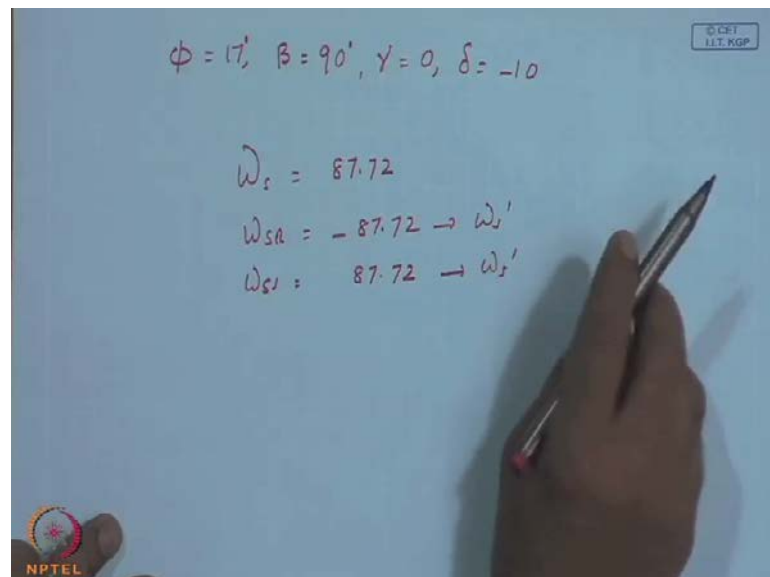 © CET
I.I.T. KGP
ϕ = 17°, β = 90°, γ = 0, δ = -10
ω_s = 87.72
ω_SR = - 87.72 → ω_s'
ω_SS = 87.72 → ω_s'
NPTEL